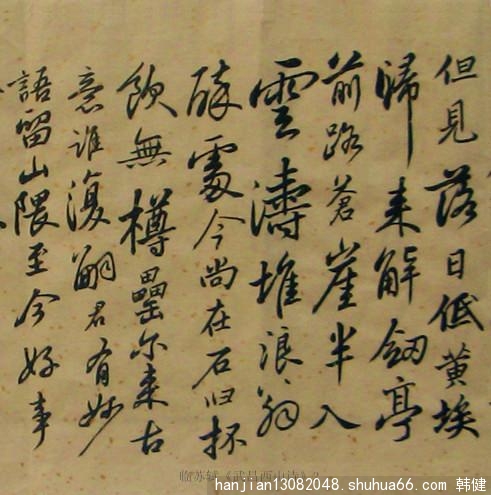 但見落日低黄埃
歸来解劔亭
前路蒼崖半入
雲濤堆浪翁
醉處今尚在石臼杯
飲無樽罍尔来古
意誰復嗣君有妙
語留山隈至今好事
临苏轼《武昌西山诗》2
hanjian13082048.shuhua66.com 韩健